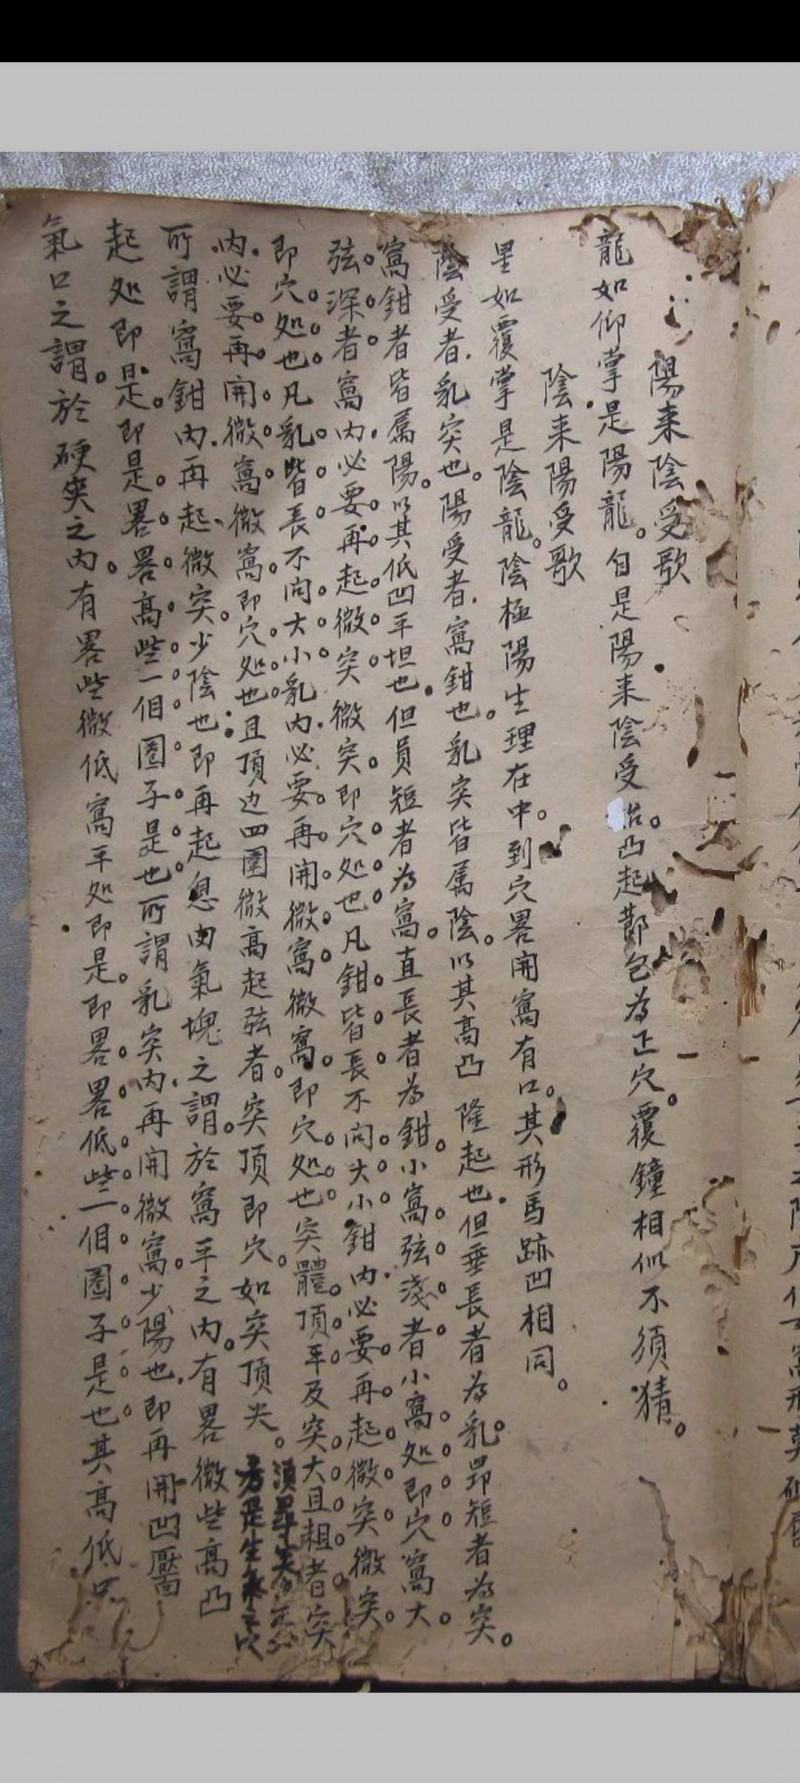 陽来陰受歌
龍如仰掌是陽龍。自是陽来陰受胎。凸起節包為正穴。覆鐘相似不須猜。
陰来陽受歌
星如覆掌是陰龍。陰極陽生理在中。到穴畧開窩有口。其形馬跡凹相同。
陰受者乳突也。陽受者窩鉗也。乳突皆属陰。以其高凸隆起也但垂長者為乳昻短者為突。
窩鉗者皆属陽。以其低凹平坦也但員短者為窩。直長者為鉗。小窩弦淺者小窩处即穴窩大
弦深者窩内必要再起微突微突即穴处也凡鉗皆長不问大小鉗内必要再起微突微突
即穴处也凡乳皆長不问大小乳内必要再開微窩微窩即穴处也突體頂平及突大且粗者突
内必要再開微窩微窩即穴处也且頂边四圍微高起弦者突頂即穴如突頂尖。
所謂窩鉗内再起微突少陰也即再起息肉氣塊之謂。於窩平之内有畧微些高凸
起処即是即是畧畧高些一個圈子是也所謂乳突内再開微窩少陽也即再開凹靨
氣口之謂。於硬突之内。有畧些微低窩平处即是。即畧畧低些一個圈子是也其高低只